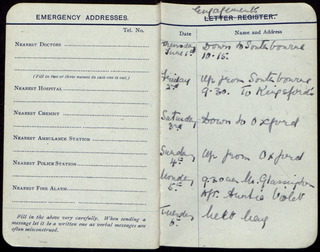 EMERGENCY ADDRESSES.
Tel. No.
NEAREST DOCTORS
(Fill in two or three names in case one is out.)
NEAREST HOSPITAL
NEAREST CHEMIST
NEAREST AMBULANCE STATION
NEAREST POLICE STATION
NEAREST FIRE ALARM
Fill in the above very carefully. When sending a
message let it be a written one as verbal messages are
often misconstrued.
Engagements
LETTER REGISTER.
Date
Name and Address
Thursday Down to Southbourne
June 1st 10.15.
Friday Up from Southbourne
2nd 9.30. To Kingsford's
Saturday Down to Oxford
3rd
Sunday Up from Oxford
4th
Monday 9.20 am Mr.
5th Aft. Auntie Violet
Tuesday
6th